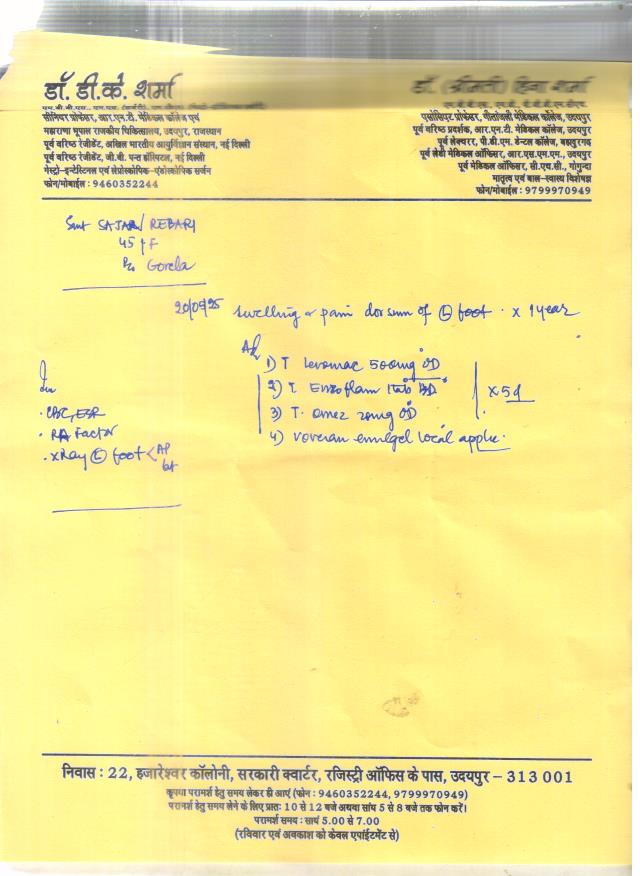 डॉ. डी.के. शर्मा
सीनियर प्रोफेसर, आर.एन.टी. मेडिकल कॉलेज एवं
महाराणा भूपाल राजकीय चिकित्सालय, उदयपुर, राजस्थान
पूर्व वरिष्ठ रेजीडेंट, अखिल भारतीय आयुर्विज्ञान संस्थान, नई दिल्ली
पूर्व वरिष्ठ रेजीडेंट, जी.बी. पन्त हॉस्पिटल, नई दिल्ली
गेस्ट्रो-इन्टेस्टिनल एवं लेप्रोस्कोपिक-एंडोस्कोपिक सर्जन
फोन/मोबाईल : 9460352244
डॉ. (श्रीमती) हिना शर्मा
एसोसिएट प्रोफेसर, गीतांजली मेडिकल कॉलेज, उदयपुर
पूर्व वरिष्ठ प्रदर्शक, आर.एन.टी. मेडिकल कॉलेज, उदयपुर
पूर्व लेक्चरर, पी.डी.एम. डेन्टल कॉलेज, बहादुरगढ़
पूर्व लेडी मेडिकल ऑफिसर, आर.एस.एम.एम., उदयपुर
पूर्व मेडिकल ऑफिसर, सी.एच.सी., गोगुन्दा
मातृत्व एवं बाल-स्वास्थ्य विशेषज्ञ
फोन/मोबाईल : 9799970949
Smt REBARI
45 / F
20/05/25 swelling & pain dorsum of Ⓛ foot . x 1 year
Adv
1) T Levomac 500mg OD
2) T. Enzoflam 1tab BD
3) T. Omez 20mg OD
x 5d
4) Voveran emulgel local applic.
Inv
. CBC, ESR
. RA Factor
. xRay Ⓛ foot < AP
lat
निवास : 22, हजारेश्वर कॉलोनी, सरकारी क्वार्टर, रजिस्ट्री ऑफिस के पास, उदयपुर – 313 001
कृपया परामर्श हेतु समय लेकर ही आएं (फोन : 9460352244, 9799970949)
परामर्श हेतु समय लेने के लिए प्रातः 10 से 12 बजे अथवा सांय 5 से 8 बजे तक फोन करें।
परामर्श समय : सायं 5.00 से 7.00
(रविवार एवं अवकाश को केवल एपॉइंटमेंट से)